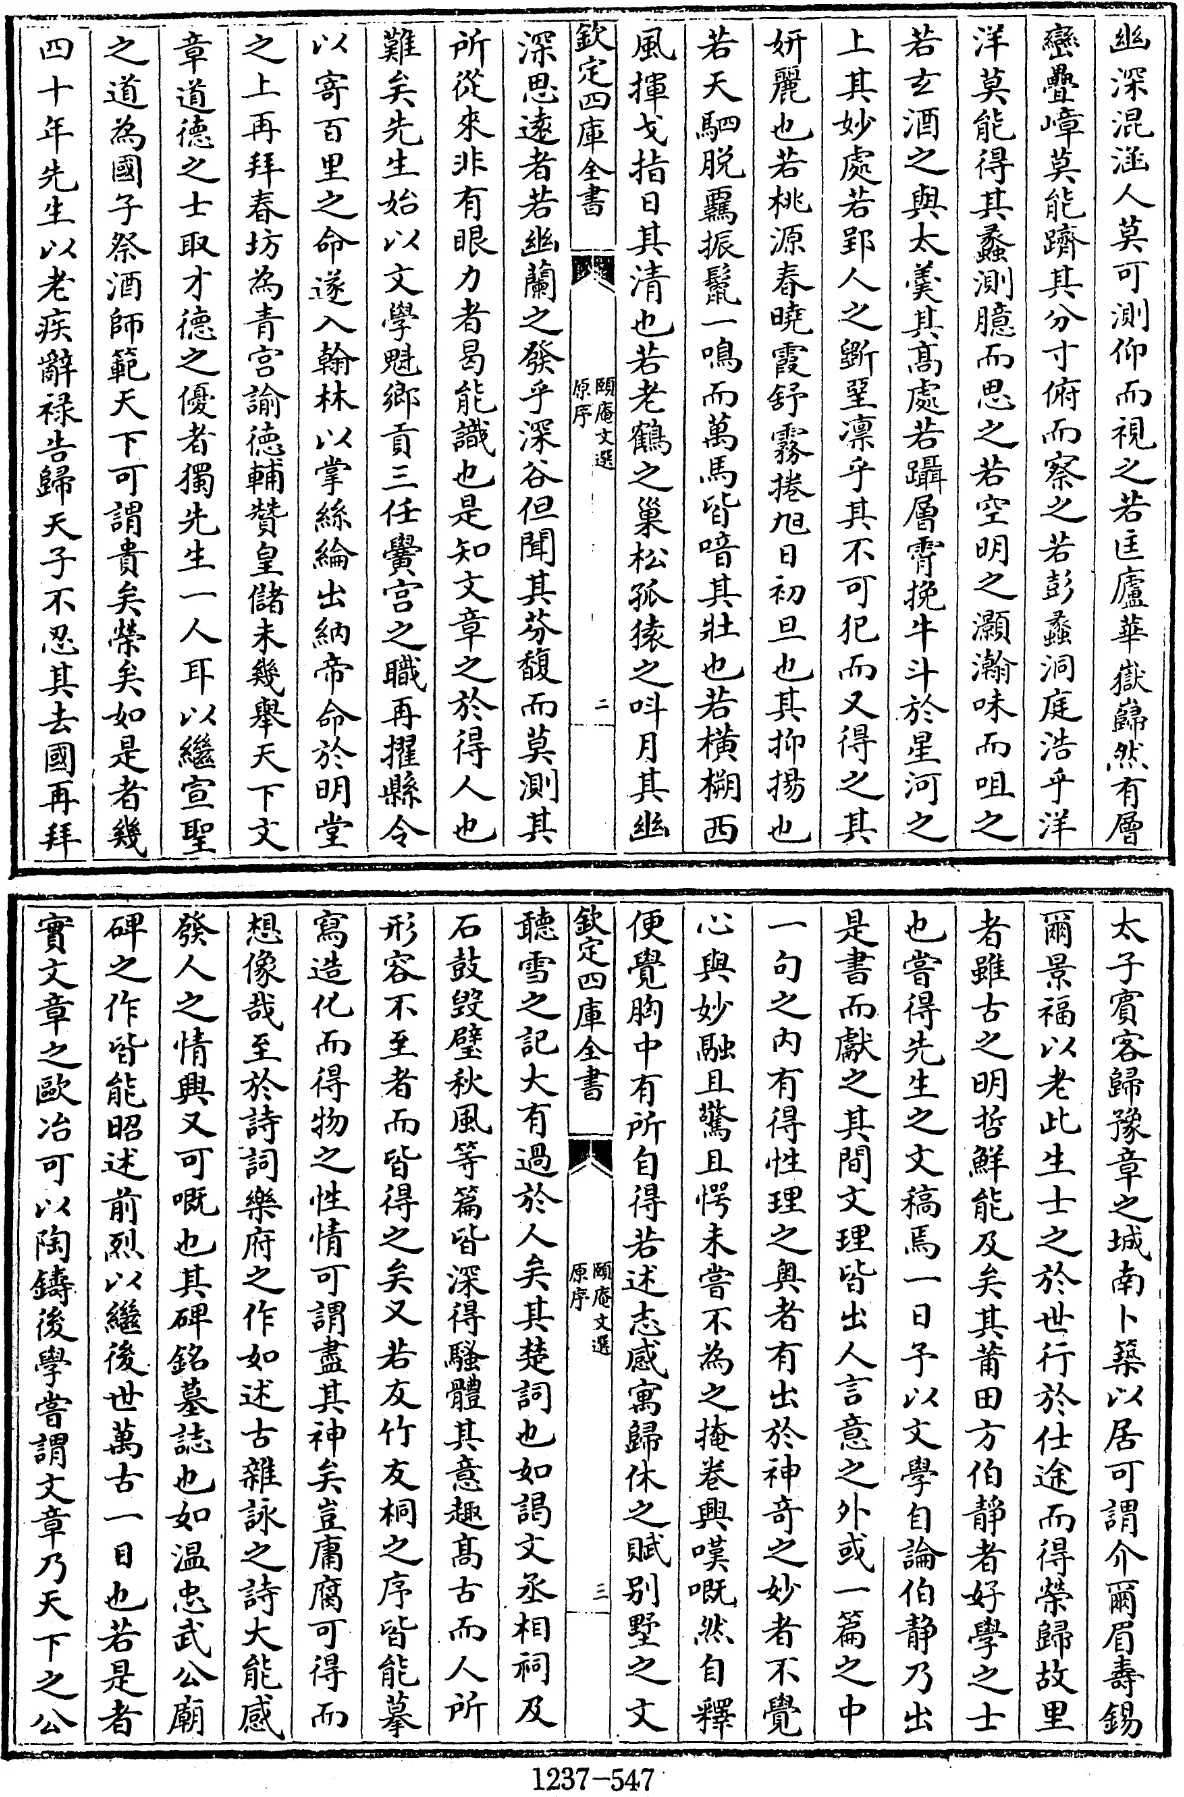 幽深混涵人莫可測仰而視之若匡廬華嶽巋然有層
巒疊嶂莫能躋其分寸俯而察之若彭蠡洞庭浩乎洋
洋莫能得其蠡測臆而思之若空明之灝瀚味而咀之
若玄酒之與太羹其高處若躡層霄挽牛斗於星河之
上其妙處若郢人之斲堊凛乎其不可犯而又得之其
妍麗也若桃源春曉霞舒霧捲旭日初旦也其抑揚也
若天駟脱羈振鬛一鳴而萬馬皆喑其壯也若橫槊西
風揮戈指日其清也若老鶴之巢松孤猿之呌月其幽
欽定四庫全書
頤庵文選
原序
二
深思遠者若幽蘭之發乎深谷但聞其芬馥而莫測其
所從來非有眼力者曷能識也是知文章之於得人也
難矣先生始以文學魁鄉貢三任黌宫之職再擢縣令
以寄百里之命遂入翰林以掌絲綸出納帝命於明堂
之上再拜春坊為青宫諭德輔贊皇儲未幾舉天下文
章道德之士取才德之優者獨先生一人耳以繼宣聖
之道為國子祭酒師範天下可謂貴矣榮矣如是者幾
四十年先生以老疾辭禄告歸天子不忍其去國再拜
太子賓客歸豫章之城南卜築以居可謂介爾眉壽錫
爾景福以老此生士之於世行於仕途而得榮歸故里
者雖古之明哲鮮能及矣其莆田方伯静者好學之士
也嘗得先生之文稿焉一日予以文學自論伯静乃出
是書而獻之其間文理皆出人言意之外或一篇之中
一句之内有得性理之奥者有出於神奇之妙者不覺
心與妙融且驚且愕未嘗不為之掩卷興嘆嘅然自釋
便覺胸中有所自得若述志感寓歸休之賦别墅之文
欽定四庫全書
頤庵文選
原序
三
聽雪之記大有過於人矣其楚詞也如謁文丞相祠及
石鼓毁璧秋風等篇皆深得騷體其意趣高古而人所
形容不至者而皆得之矣又若友竹友桐之序皆能摹
寫造化而得物之性情可謂盡其神矣豈庸腐可得而
想像哉至於詩詞樂府之作如述古雜詠之詩大能感
發人之情興又可嘅也其碑銘墓誌也如温忠武公廟
碑之作皆能昭述前烈以繼後世萬古一目也若是者
實文章之歐冶可以陶鑄後學嘗謂文章乃天下之公
1237-547